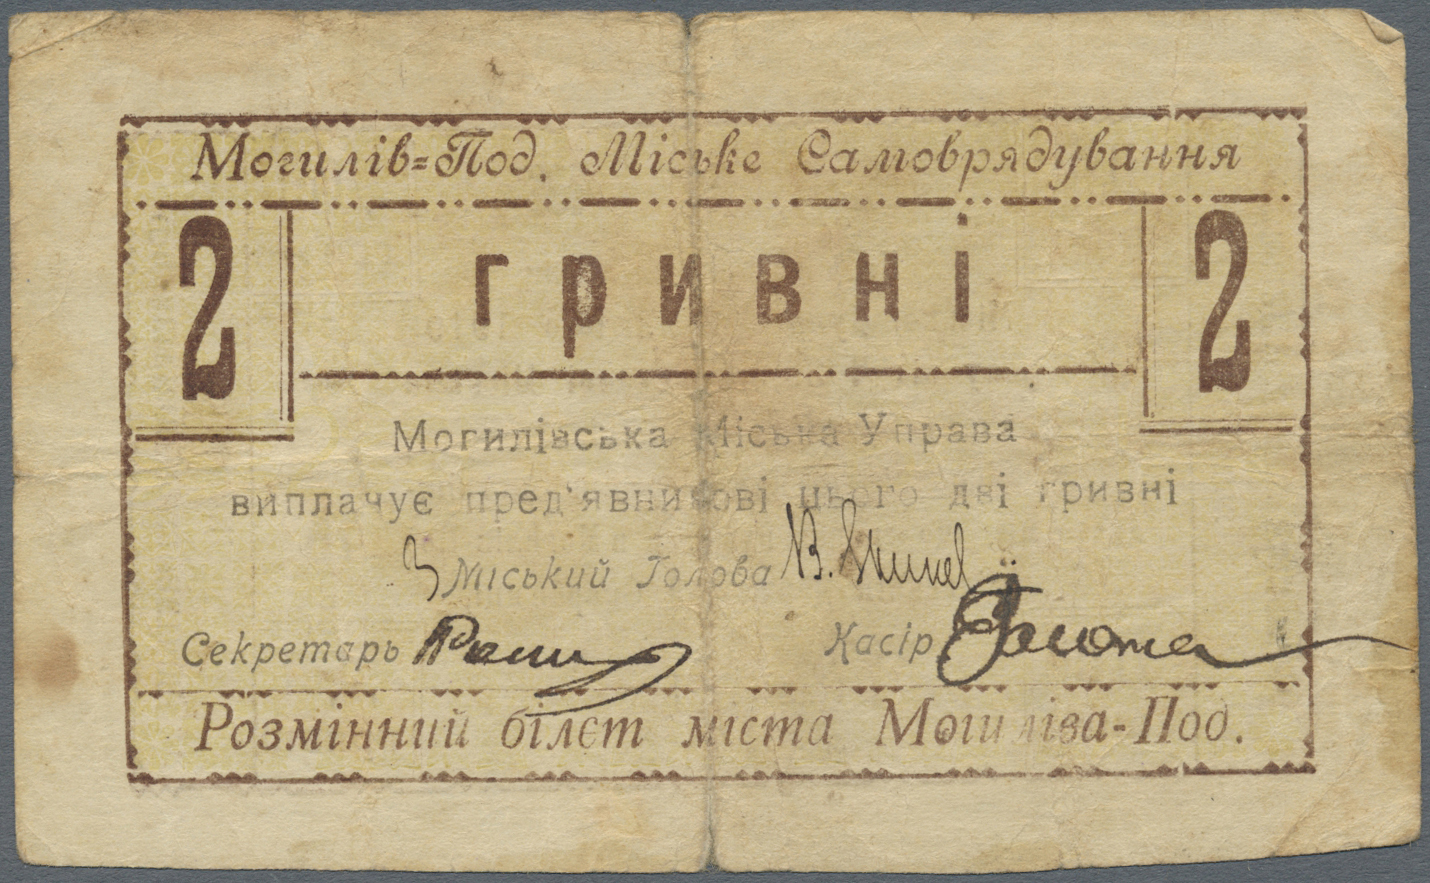 Могилів=Под. Міське Самоврядування
2 гривні 2
Могилівська Міська Управа
виплачує пред'явникові цього дві гривні
З Міський Голова В.
Секретарь
Касір
Розмінний білєт міста Могиліва-Под.